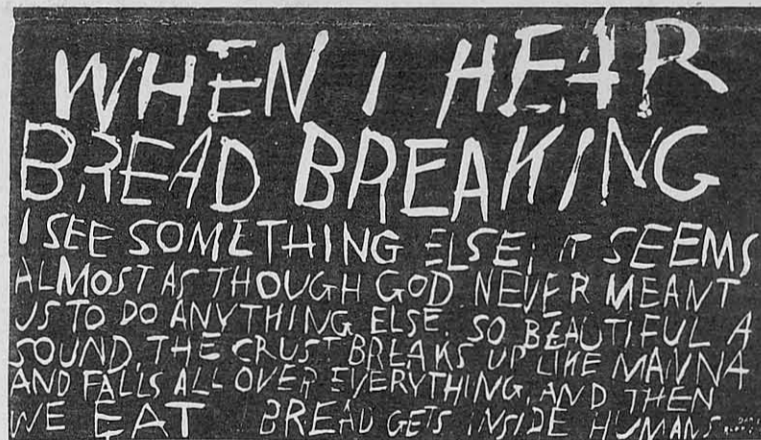 WHEN I HEAR
BREAD BREAKING
I SEE SOMETHING ELSE; IT SEEMS
ALMOST AS THOUGH GOD NEVER MEANT
US TO DO ANYTHING ELSE. SO BEAUTIFUL A
SOUND, THE CRUST BREAKS UP LIKE MANNA
AND FALLS ALL OVER EVERYTHING, AND THEN
WE EAT BREAD GETS INSIDE HUMANS